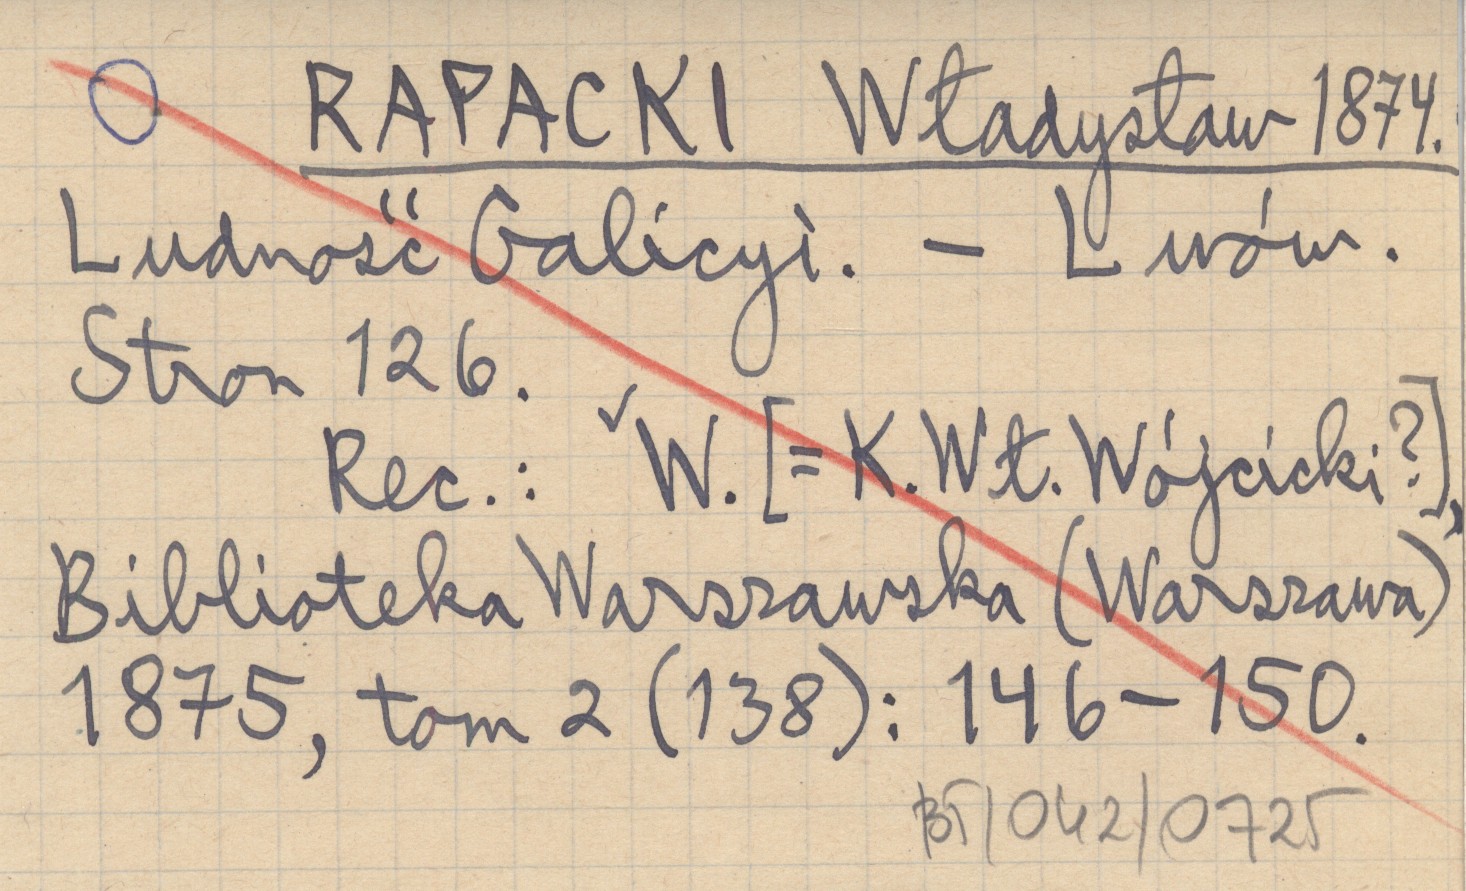 RAPACKI Władysław 1874.
Ludność Galicyi. – Lwów.
Stron 126.
Rec.: ✓W. [= K. Wł. Wójcicki?],
Biblioteka Warszawska (Warszawa)
1875, tom 2 (138): 146–150.
BŚ/042/0725